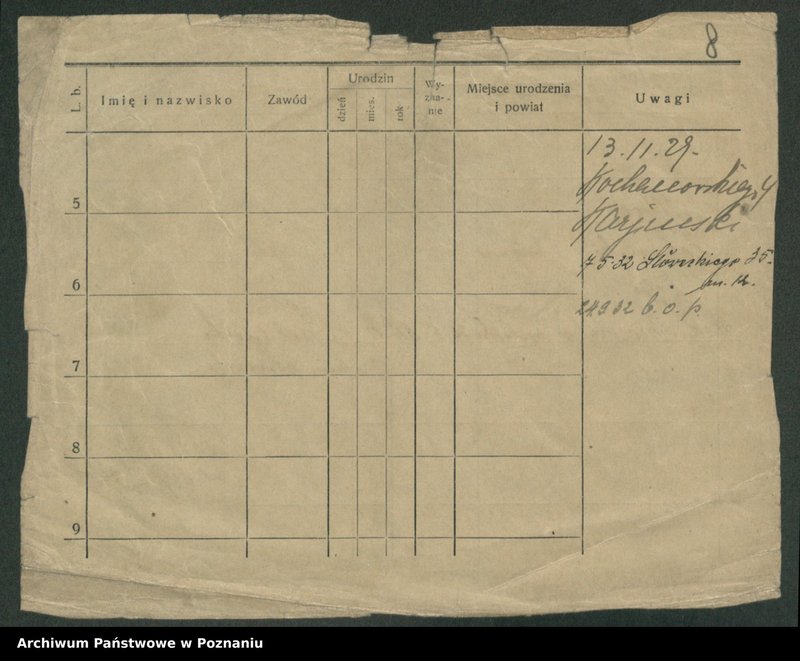 8
L. b.
Imię i nazwisko
Zawód
Urodzin
dzień
mies.
rok
Wy-
zna-
nie
Miejsce urodzenia
i powiat
Uwagi
13.11.29.
Kochanowskiego 4
5
7 5-32 Słowackiego 35.
m. 12.
6
24932 b. o. p.
7
8
9
Archiwum Państwowe w Poznaniu